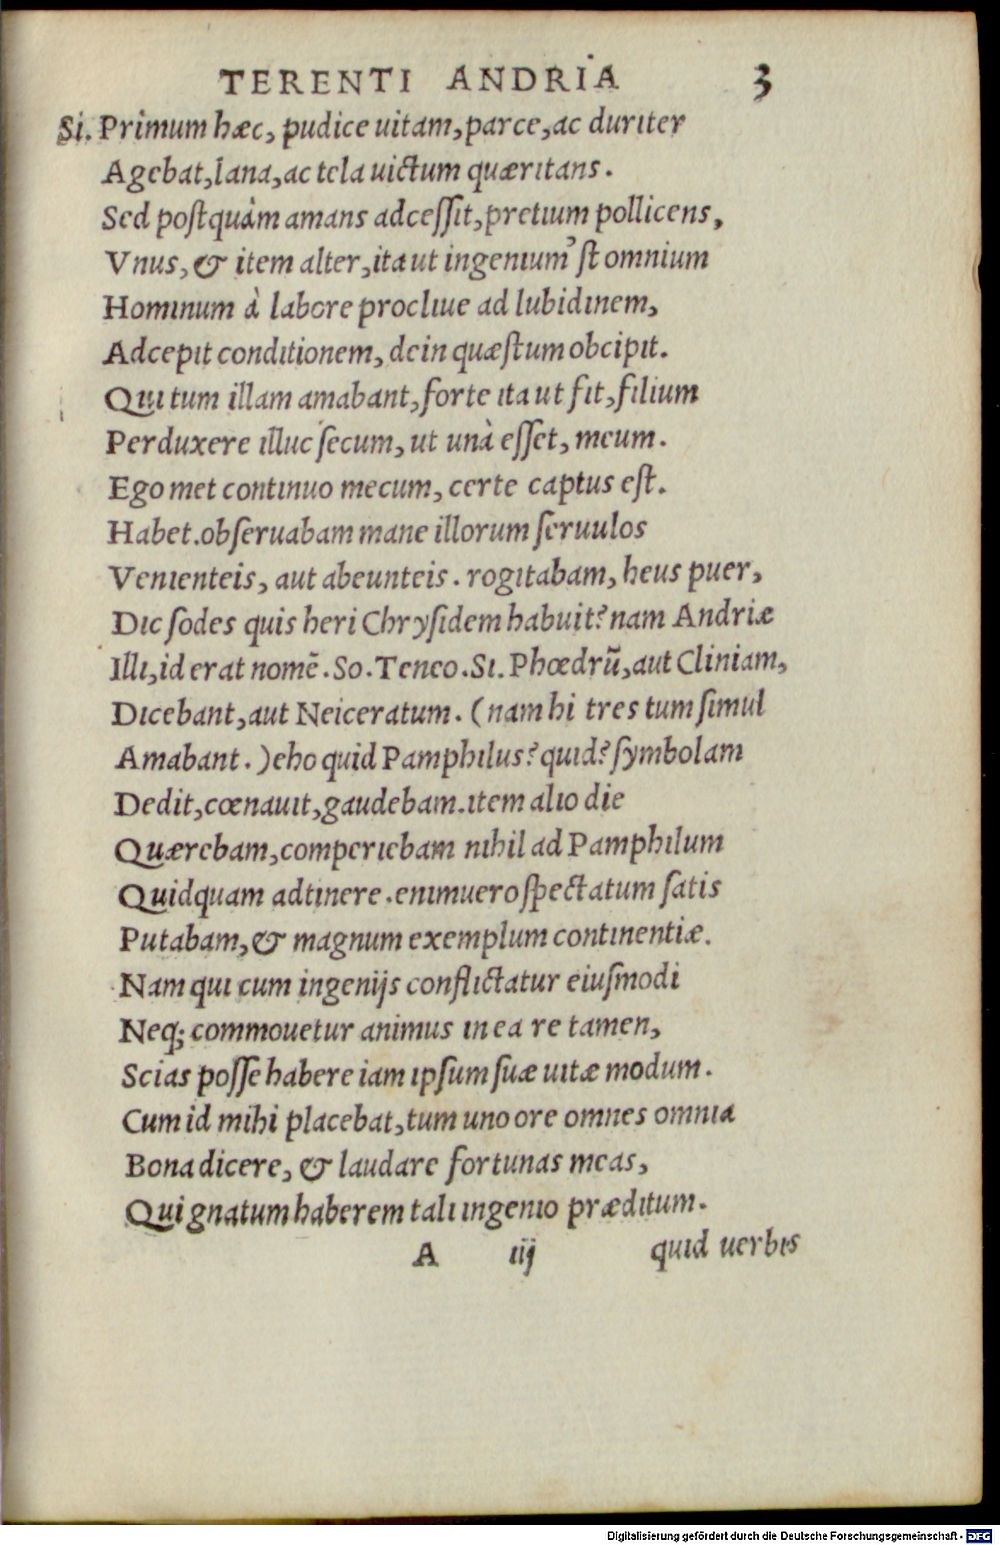 TERENTI ANDRIA 3
Si. Primum hæc, pudice uitam, parce, ac duriter
Agebat, lana, ac tela uictum quæritans.
Sed poſtquàm amans adceſſit, pretium pollicens,
Vnus, & item alter, ita ut ingenium'ſt omnium
Hominum à labore procliue ad lubidinem,
Adcepit conditionem, dein quæſtum obcipit.
Qui tum illam amabant, forte ita ut fit, filium
Perduxere illuc ſecum, ut unà eſſet, meum.
Egomet continuo mecum, certe captus eſt.
Habet. obſeruabam mane illorum ſeruulos
Venienteis, aut abeunteis. rogitabam, heus puer,
Dic ſodes quis heri Chryſidem habuit? nam Andriæ
Illi, id erat nomē. So. Teneo. Si. Phœdrū, aut Cliniam,
Dicebant, aut Neiceratum. (nam hi tres tum ſimul
Amabant.) eho quid Pamphilus? quid? ſymbolam
Dedit, cœnauit, gaudebam. item alio die
Quærebam, comperiebam nihil ad Pamphilum
Quidquam adtinere. enimuero ſpectatum ſatis
Putabam, & magnum exemplum continentiæ.
Nam qui cum ingenijs conflictatur eiuſmodi
Neq; commouetur animus in ea re tamen,
Scias poſſe habere iam ipſum ſuæ uitæ modum.
Cum id mihi placebat, tum uno ore omnes omnia
Bona dicere, & laudare fortunas meas,
Qui gnatum haberem tali ingenio præditum.
A iij quid uerbis
Digitalisierung gefördert durch die Deutsche Forschungsgemeinschaft - DFG